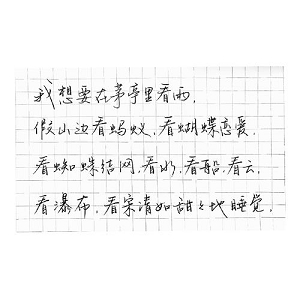 我想要在茅亭里看雨,
假山边看蚂蚁,看蝴蝶恋爱,
看蜘蛛结网,看水,看船,看云,
看瀑布,看宋清如甜甜地睡觉.